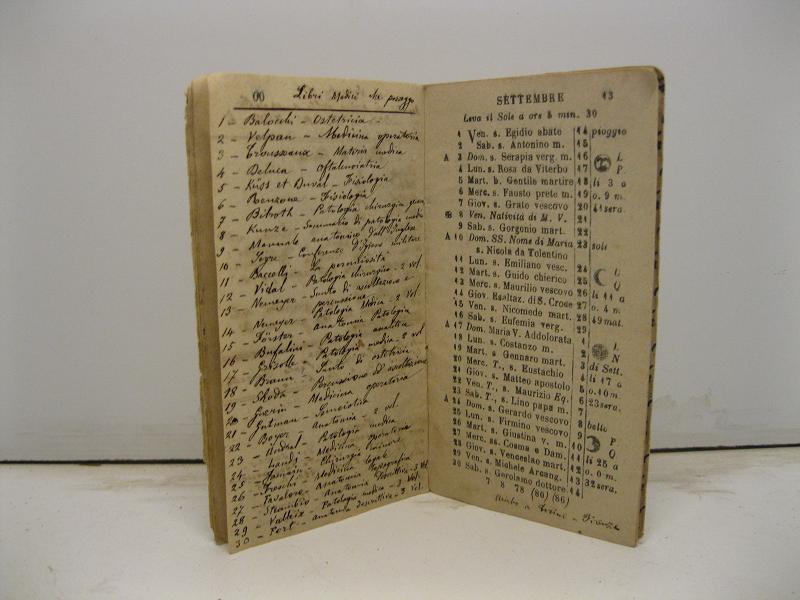 00 Libri Medici che posseggo
1 - Balocchi - Ostetricia -
2 - Velpau - Medicina operatoria
3 - Trousseaux - Materia medica
4 - Deluca - Oftalmoiatria
5 - Küss et Duval - Fisiologia
6 - Renzone - Fisiologia
7 - Bilroth - Patologia chirurgia gen.
8 - Kunze - Sommario di patologia medica
9 - Manuale anatomico dall'Inglese
10 - Segre - Conferenze d'Igiene militare
11 - Baccelli - La perniciosità
12 - Vidal - Patologia chirurgica - 2 vol
13 - Niemeyer - Sunto di ascoltazione e
percussione
14 - Niemeyer - Patologia Medica - 2 Vol
15 - Förster - Anatomia Patologia
16 - Bufalini - Patologia analitica
17 - Grisolle - Patologia medica - 2 vol
18 - Braun - Sunto di ostetricia
19 - Skoda - Percussione ed ascoltazione
20 - Guerin - Medicina operatoria
21 - Gutman - Semeiotica
22 - Boyer - Anatomia - 2 vol.
23 - Andral - Patologia medica
24 - Landi - Medicina operatoria
25 - Chirurgia minore
26 - Freschi - Medicina legale
27 - Favalore - Anatomia topografica
28 - Anatomia
29 - Valleix - Patologia medica - 3 vol.
30 - Fort - anatomia descrittiva - 3 vol.
SETTEMBRE 43
Leva il Sole a ore 5 min. 30
1 Ven. s. Egidio abate 14 pioggio
2 Sab. s. Antonino m. 15
A 3 Dom. s. Serapia verg. m. 16 L
4 Lun. s. Rosa da Viterbo 17 P.
5 Mart. b. Gentile martire 18 li 3 a
6 Merc. s. Fausto prete m. 19 o. 9 m.
7 Giov. s. Grato vescovo 20 41 sera.
8 Ven. Natività di M. V. 21
9 Sab. s. Gorgonio mart. 22
A 10 Dom. SS. Nome di Maria 23 sole
s. Nicola da Tolentino
11 Lun. s. Emiliano vesc. 24 U
12 Mart. s. Guido chierico 25 Q
13 Merc. s. Maurilio vescovo 26 li 11 a
14 Giov. Esaltaz. di S. Croce 27 o. 4 m.
15 Ven. s. Nicomede mart. 28 49 mat.
16 Sab. s. Eufemia verg. 29
A 17 Dom. Maria V. Addolorata 1 L
18 Lun. s. Costanzo m. 2 N
19 Mart. s. Gennaro mart. 3 di Sett.
20 Merc. T., s. Eustachio 4 li 17 a
21 Giov. s. Matteo apostolo 5 o. 10 m.
22 Ven. T., s. Maurizio Eq. 6 23 sera.
23 Sab. T., s. Lino papa m. 7
A 24 Dom. s. Gerardo vescovo 8 bello
25 Lun. s. Firmino vescovo 9 P.
26 Mart. s. Giustina v. m. 10 Q
27 Merc. ss. Cosma e Dami. 11 li 25 a
28 Giov. s. Venceslao mart. 12 o. 0 m.
29 Ven. s. Michele Arcang. 13 32 sera.
30 Sab. s. Gerolamo dottore 14
7 8 78 (80) (86)
Ambo a Torino - Firenze